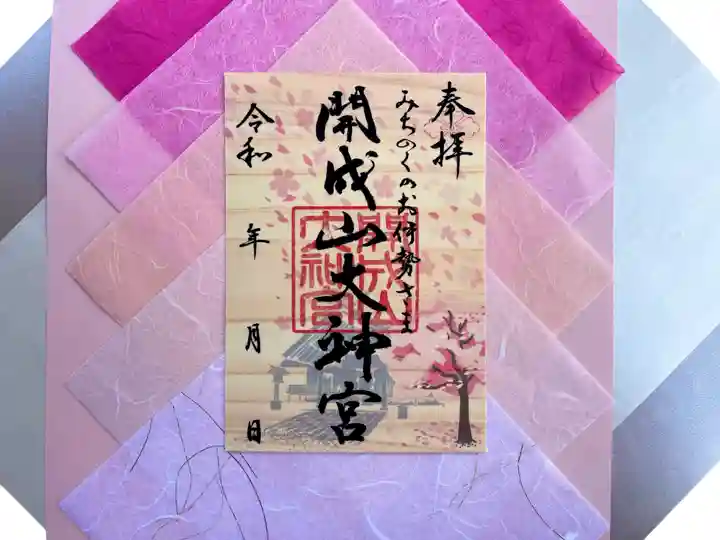 奉拝
みちのくのお伊勢さま
開成山大神宮
開成山大神宮
令和 年 月 日